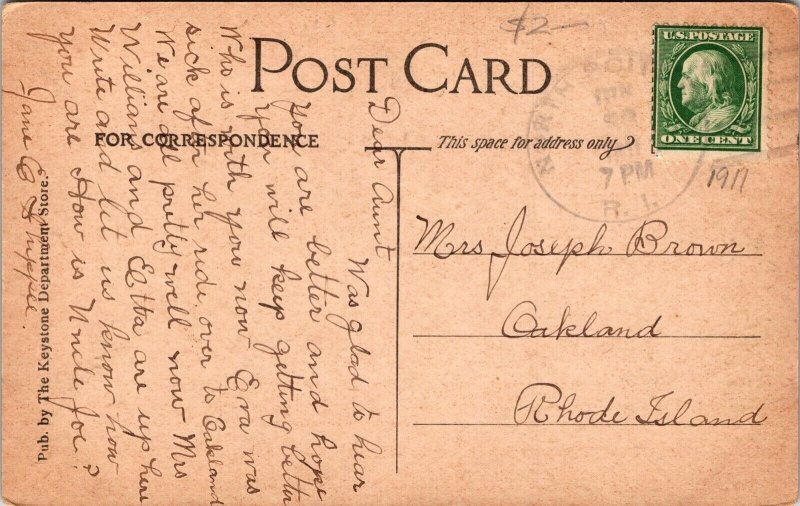 $2—
POST CARD
FOR CORRESPONDENCE
This space for address only
U.S. POSTAGE
ONE CENT
7 PM
R. I.
1911
Mrs Joseph Brown
Oakland
Rhode Island
Dear Aunt
Was glad to hear
you are better and hope
you will keep getting better
Who is with you now Eva was
sick after her ride over to Oakland
We are all pretty well now Mrs
Williams and Etta are up here
Write and let us know how
you are How is Uncle Joe?
Jane E
Pub. by The Keystone Department Store.